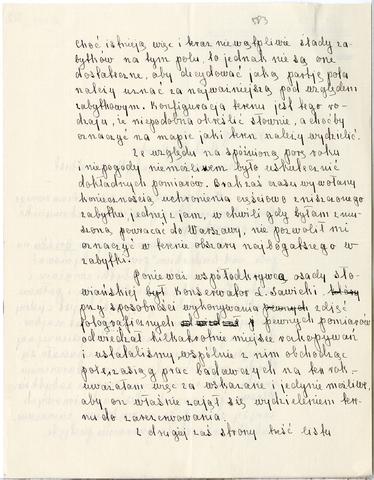 583
choć istnieją więc i teraz niewątpliwie ślady za-
bytków na tym polu, to jednak nie są one
dostateczne, aby decydować jaką partję pola
należy uznać za najważniejszą pod względem
zabytkowym. Konfiguracja terenu jest tego ro-
dzaju, że niepodobna określić słownie, a choćby
oznaczyć na mapie jaki teren należy wydzielić.
Ze względu na spóźnioną porę roku
i niepogody niemożliwem było uskutecznić
dokładnych pomiarów. Brak zaś czasu wywołany
koniecznością uchronienia częściowo zniszczonego
zabytku, jednej z jam, w chwili gdy byłam zmu-
szoną powracać do Warszawy, nie pozwolił mi
oznaczyć w terenie obszaru najbogatszego w
zabytki.
Ponieważ współodkrywcą osady sło-
wiańskiej był Konserwator L. Sawicki
przy sposobności wykonywania pewnych zdjęć
fotograficznych i pewnych pomiarów
odwiedzał kilkakrotnie miejsce rozkopywań
i ustalaliśmy wspólnie z nim obchodząc
poszczasiąg prac badawczych na ten rok -
uważałam więc za wskazane i jedynie możliwe,
aby on właśnie zajął się wydzieleniem tere-
nu do zarezerwowania.
Z drugiej zaś strony treść listu